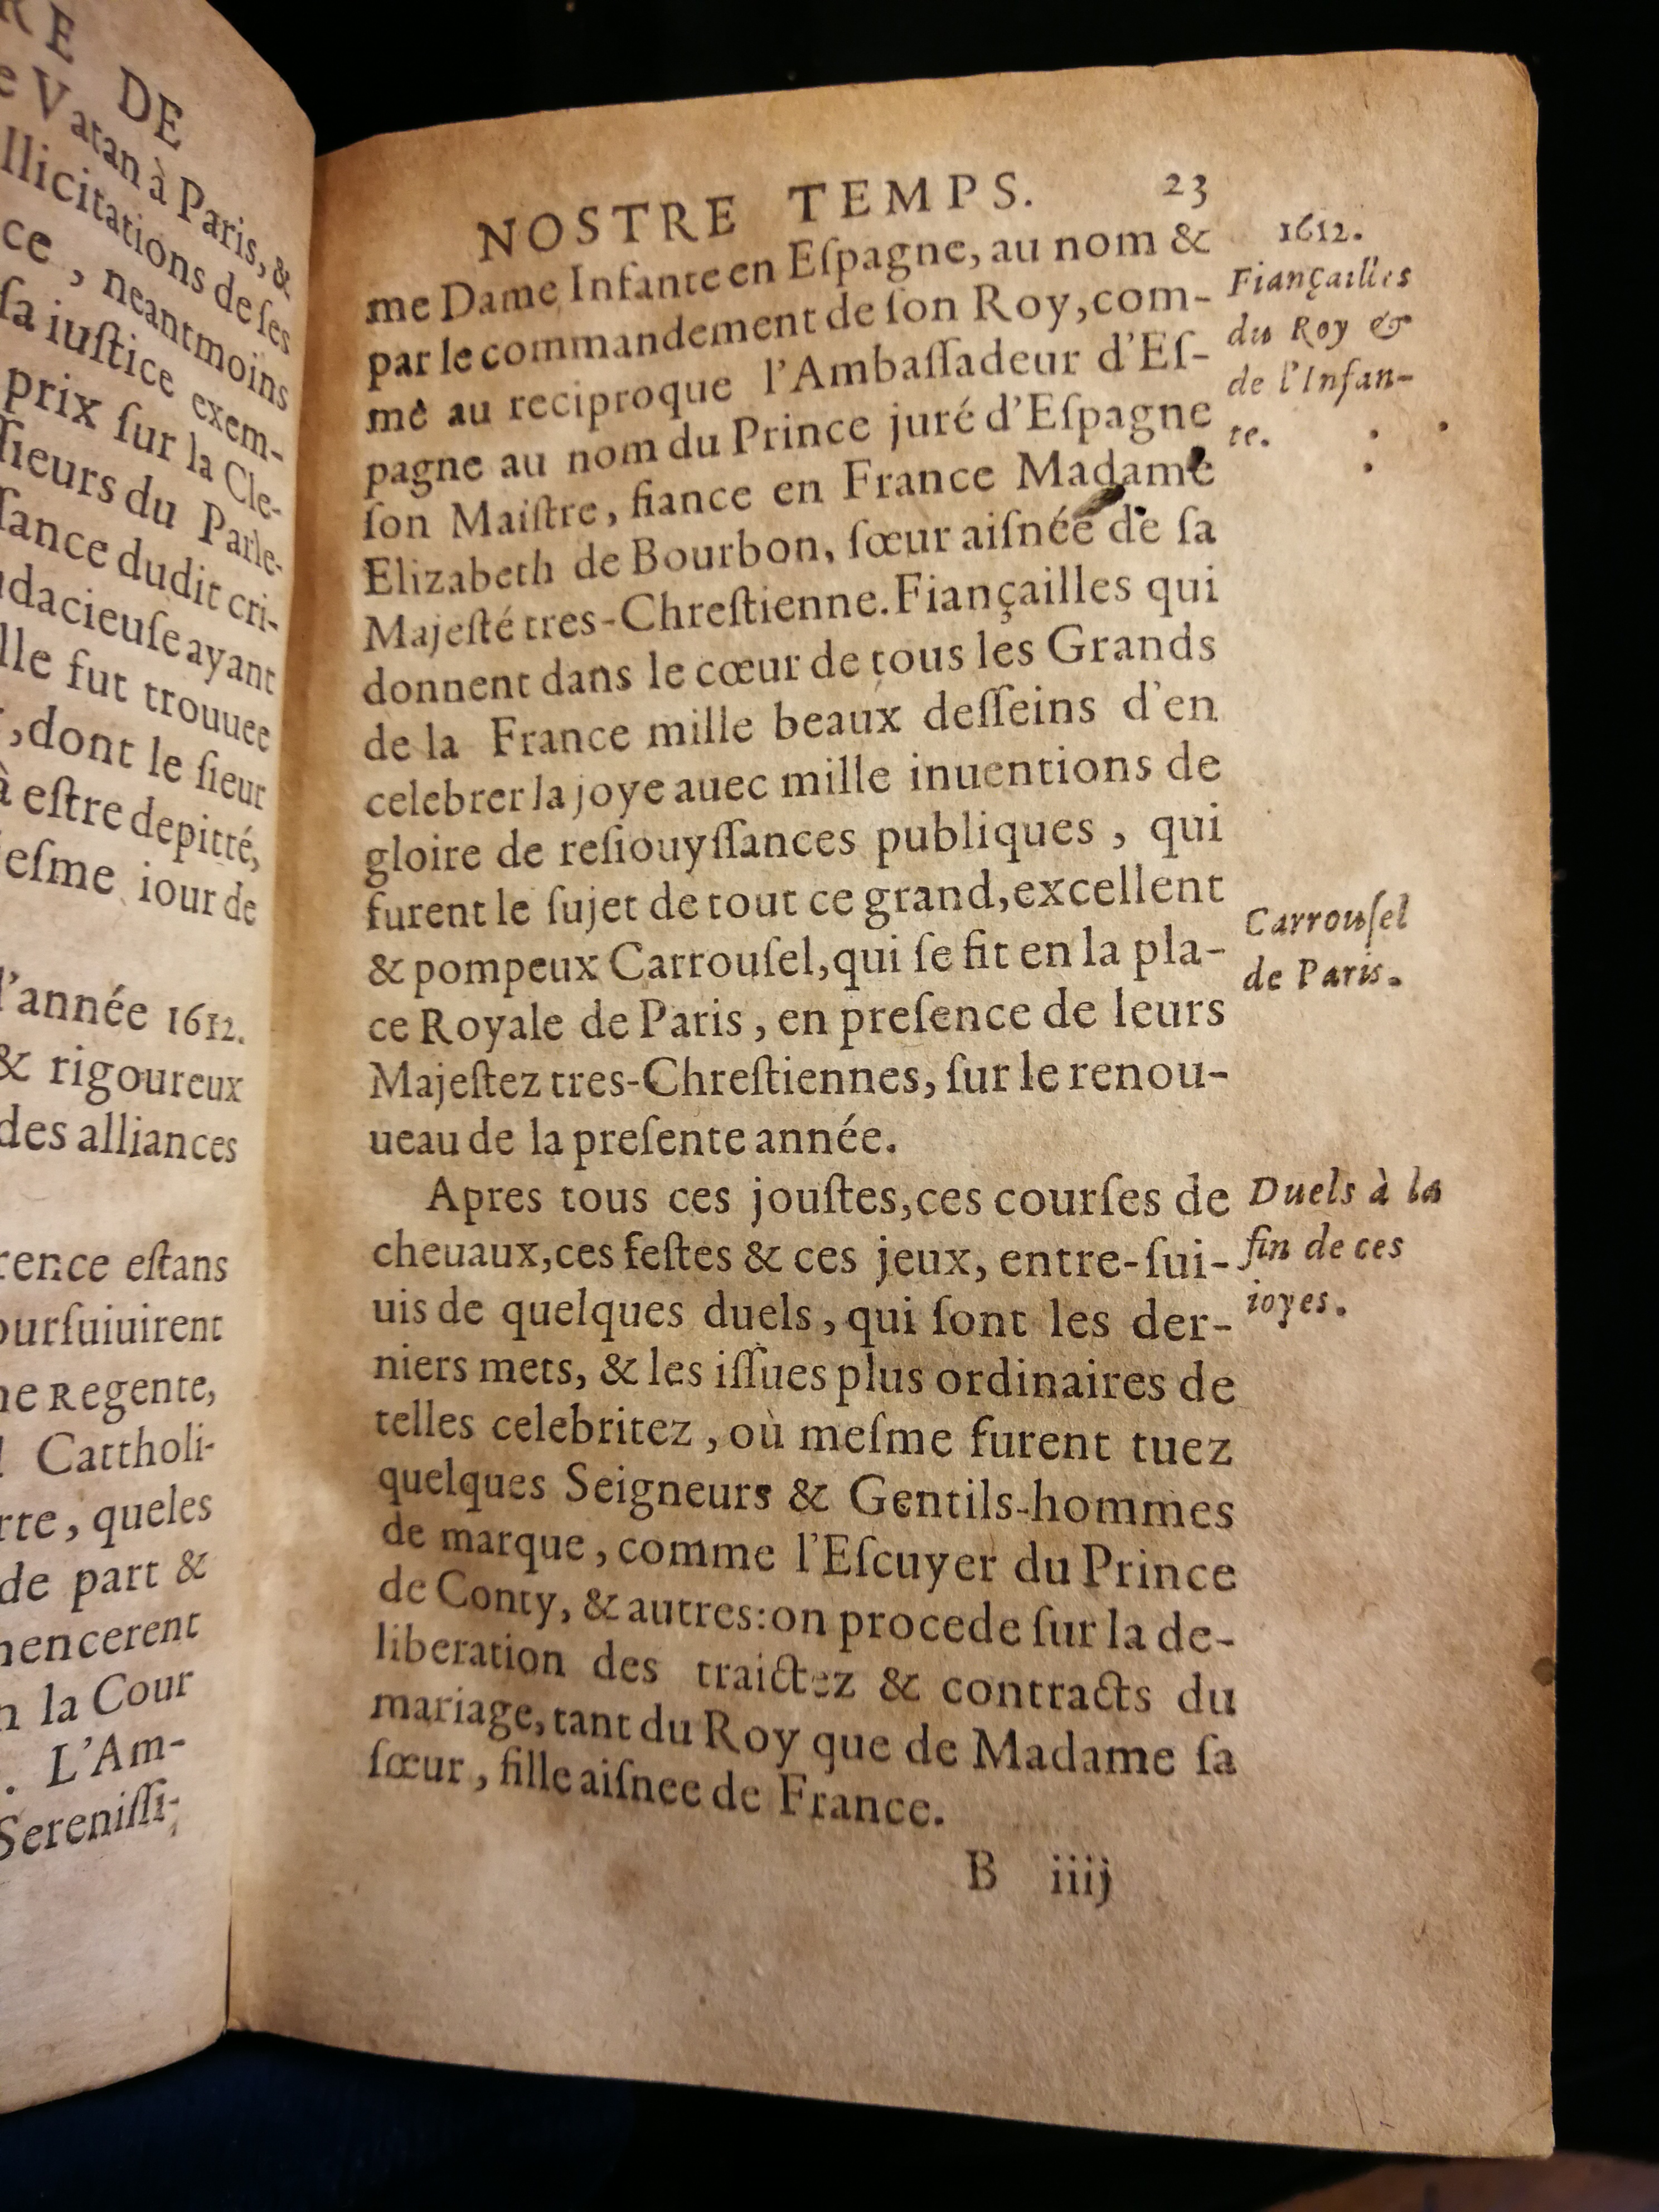 RE DE
e Vatan à Paris, &
llicitations de ſes
ce, neantmoins
ſa iuſtice exem-
prix ſur la Cle-
ſieurs du Parle-
ſance dudit cri-
dacieuſe ayant
lle fut trouuee
,dont le ſieur
à eſtre depitté,
eſme iour de
l'année 1612.
& rigoureux
des alliances
rence eſtans
ourſuiuirent
ne Regente,
Cattholi-
rte, queles
de part &
mencerent
n la Cour
. L'Am-
Sereniſſi-
NOSTRE TEMPS. 23
me Dame Infante en Eſpagne, au nom &
par le commandement de ſon Roy, com-
me au reciproque l'Ambaſſadeur d'Eſ-
pagne au nom du Prince juré d'Eſpagne
ſon Maiſtre, fiance en France Madame
Elizabeth de Bourbon, ſœur aiſnée de ſa
Majeſté tres-Chreſtienne. Fiançailles qui
donnent dans le cœur de tous les Grands
de la France mille beaux deſſeins d'en
celebrer la joye auec mille inuentions de
gloire de reſiouyſſances publiques, qui
furent le ſujet de tout ce grand, excellent
& pompeux Carrouſel, qui ſe fit en la pla-
ce Royale de Paris, en preſence de leurs
Majeſtez tres-Chreſtiennes, ſur le renou-
ueau de la preſente année.
Apres tous ces jouſtes, ces courſes de
cheuaux, ces feſtes & ces jeux, entre-ſui-
uis de quelques duels, qui ſont les der-
niers mets, & les iſſues plus ordinaires de
telles celebritez, où meſme furent tuez
quelques Seigneurs & Gentils-hommes
de marque, comme l'Eſcuyer du Prince
de Conty, & autres: on procede ſur la de-
liberation des traictez & contracts du
mariage, tant du Roy que de Madame ſa
ſœur, fille aiſnee de France.
B iiij
1612.
Fiançailles
du Roy &
de l'Infan-
te.
Carrouſel
de Paris.
Duels à la
fin de ces
ioyes.